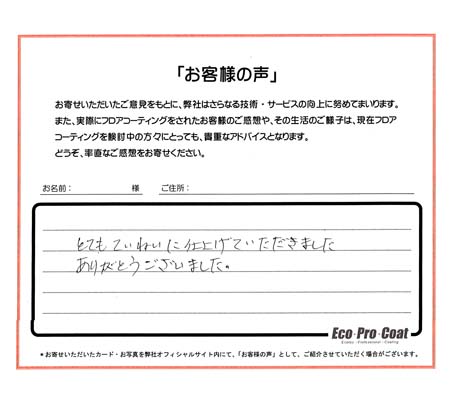 「お客様の声」
お寄せいただいたご意見をもとに、弊社はさらなる技術・サービスの向上に努めてまいります。
また、実際にフロアコーティングをされたお客様のご感想や、その生活のご様子は、現在フロア
コーティングを検討中の方々にとっても、貴重なアドバイスとなります。
どうぞ、率直なご感想をお寄せください。
お名前： 様 ご住所：
とてもていねいに仕上げていただきました
ありがとうございました。
Eco・Pro・Coat
Ecology Professional Coating
＊お寄せいただいたカード・お写真を弊社オフィシャルサイト内にて、「お客様の声」として、ご紹介させていただく場合がございます。